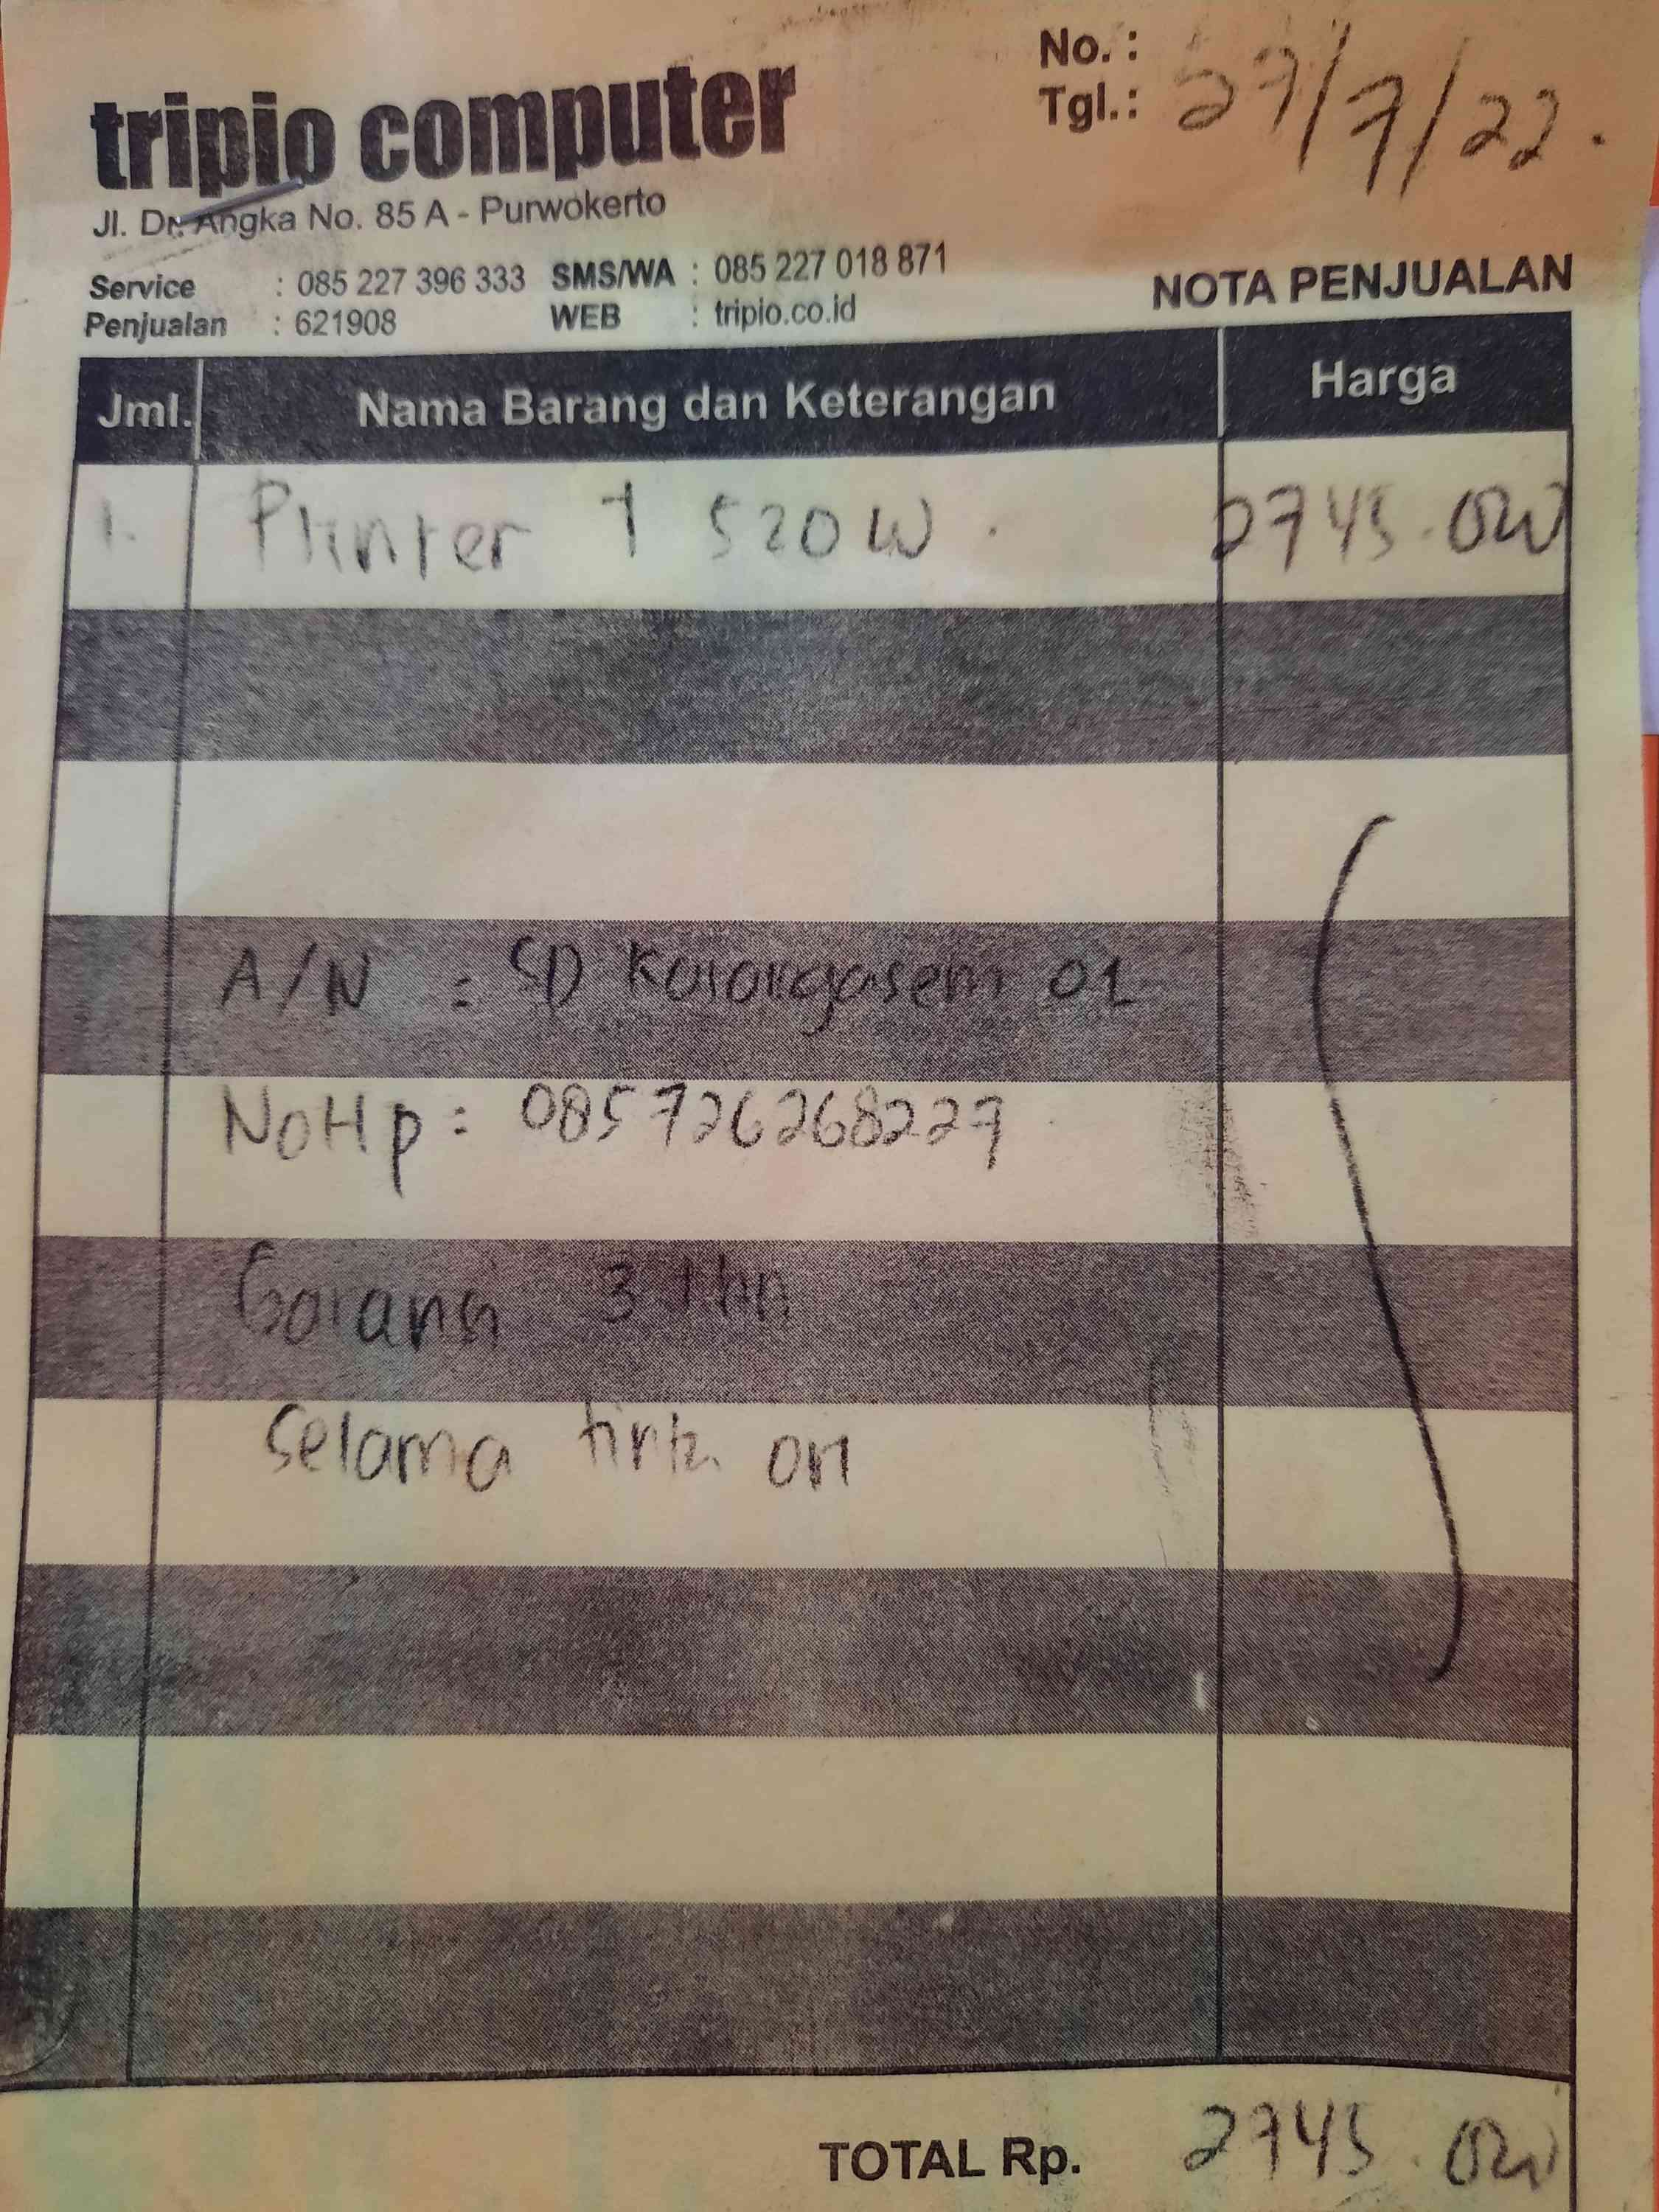 No. :
Tgl. : 27/7/22.
tripio computer
Jl. Dr. Angka No. 85 A - Purwokerto
Service : 085 227 396 333 SMS/WA : 085 227 018 871
Penjualan : 621908 WEB : tripio.co.id
NOTA PENJUALAN
Jml. Nama Barang dan Keterangan Harga
1. Printer T 520 W. 2745.000
A/N : SD Karangasem 01
No Hp : 085726268227
Garansi 3 thn
selama tinta ori
TOTAL Rp. 2745.000